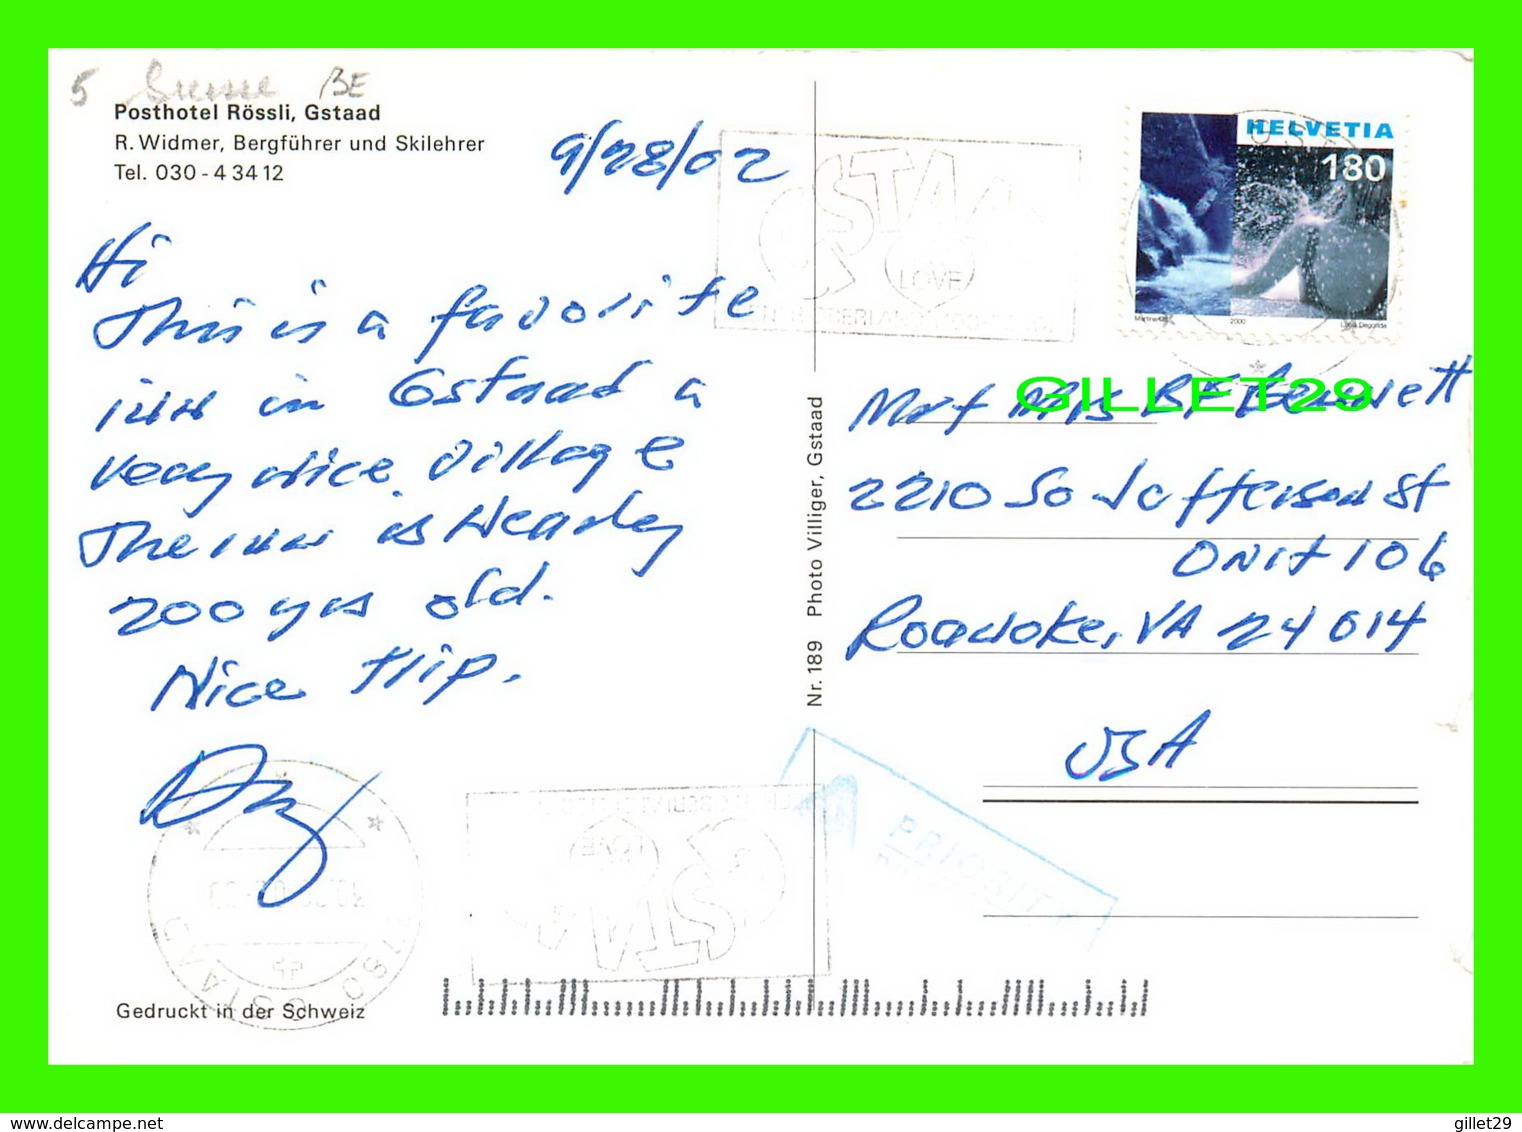 5 Suisse BE
Posthotel Rössli, Gstaad
R. Widmer, Bergführer und Skilehrer
Tel. 030 - 4 34 12
9/28/02
Hi
This is a favorite
inn in Gstaad a
very nice village
The inn is nearly
200 yrs old.
Nice trip.
Gedruckt in der Schweiz
Nr. 189 Photo Villiger, Gstaad
GSTAAD
LOVE
HELVETIA
180
2000
GILLET29
Mr & Mrs BF Bennett
2210 So Jefferson St
UNIT 106
Roanoke, VA 24014
USA
PRIORITY
3780 GSTAAD
delcampe.net
gillet29